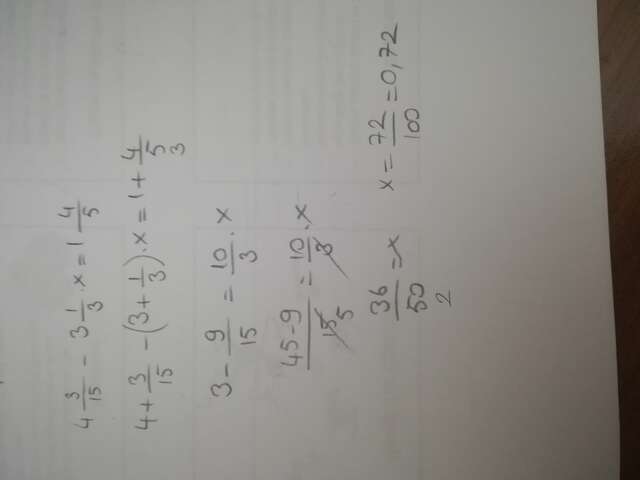 4 3/15 - 3 1/3 . x = 1 4/5
4 + 3/15 - (3 + 1/3) . x = 1 + 4/5
3
3 - 9/15 = 10/3 . x
45-9/15 = 10/3 . x
5
36/50 = x
2
x = 72/100 = 0,72